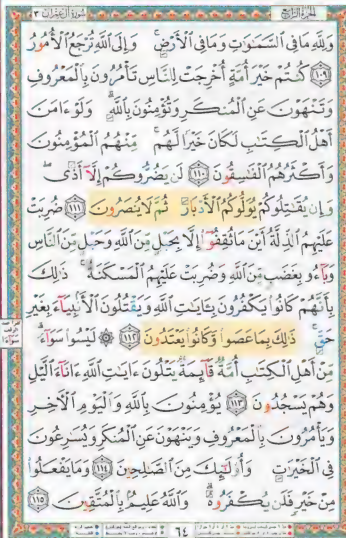 الجزء الرابع سورة آل عمران ٣
وَلِلَّهِ مَا فِي السَّمَٰوَٰتِ وَمَا فِي الْأَرْضِ ۚ وَإِلَى اللَّهِ تُرْجَعُ الْأُمُورُ
﴿١٠٩﴾ كُنتُمْ خَيْرَ أُمَّةٍ أُخْرِجَتْ لِلنَّاسِ تَأْمُرُونَ بِالْمَعْرُوفِ
وَتَنْهَوْنَ عَنِ الْمُنكَرِ وَتُؤْمِنُونَ بِاللَّهِ ۗ وَلَوْ ءَامَنَ
أَهْلُ الْكِتَٰبِ لَكَانَ خَيْرًا لَّهُم ۚ مِّنْهُمُ الْمُؤْمِنُونَ
وَأَكْثَرُهُمُ الْفَٰسِقُونَ ﴿١١٠﴾ لَن يَضُرُّوكُمْ إِلَّا أَذًى ۖ
وَإِن يُقَٰتِلُوكُمْ يُوَلُّوكُمُ الْأَدْبَارَ ثُمَّ لَا يُنصَرُونَ ﴿١١١﴾ ضُرِبَتْ
عَلَيْهِمُ الذِّلَّةُ أَيْنَ مَا ثُقِفُوا إِلَّا بِحَبْلٍ مِّنَ اللَّهِ وَحَبْلٍ مِّنَ النَّاسِ
وَبَاءُو بِغَضَبٍ مِّنَ اللَّهِ وَضُرِبَتْ عَلَيْهِمُ الْمَسْكَنَةُ ۚ ذَٰلِكَ
بِأَنَّهُمْ كَانُوا يَكْفُرُونَ بِـَٔايَٰتِ اللَّهِ وَيَقْتُلُونَ الْأَنۢبِيَاءَ بِغَيْرِ
حَقٍّ ۚ ذَٰلِكَ بِمَا عَصَوا وَّكَانُوا يَعْتَدُونَ ﴿١١٢﴾ ۞ لَيْسُوا سَوَاءً ۗ
مِّنْ أَهْلِ الْكِتَٰبِ أُمَّةٌ قَائِمَةٌ يَتْلُونَ ءَايَٰتِ اللَّهِ ءَانَاءَ الَّيْلِ
وَهُمْ يَسْجُدُونَ ﴿١١٣﴾ يُؤْمِنُونَ بِاللَّهِ وَالْيَوْمِ الْءَاخِرِ
وَيَأْمُرُونَ بِالْمَعْرُوفِ وَيَنْهَوْنَ عَنِ الْمُنكَرِ وَيُسَٰرِعُونَ
فِي الْخَيْرَٰتِ وَأُولَٰئِكَ مِنَ الصَّٰلِحِينَ ﴿١١٤﴾ وَمَا يَفْعَلُوا
مِنْ خَيْرٍ فَلَن يُكْفَرُوهُ ۗ وَاللَّهُ عَلِيمٌ بِالْمُتَّقِينَ ﴿١١٥﴾
٦٤